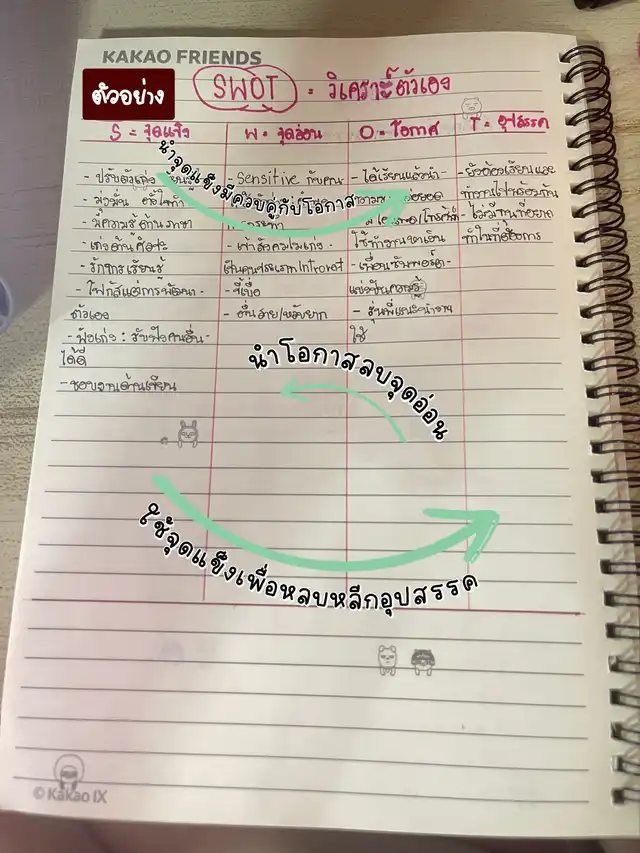 KAKAO FRIENDS
ตัวอย่าง
SWOT = วิเคราะห์ตัวเอง
S = จุดแข็ง
W = จุดอ่อน
O = โอกาศ
T = อุปสรรค
นำจุดแข็งมีควบคู่กับโอกาส
- ปรับตัวเก่ง
- มุ่งมั่น ตั้งใจทำ
- มีความรู้ด้านภาษา
- เก่งด้านศิลปะ
- รักการเรียนรู้
- โฟกัสแต่การพัฒนา
ตัวเอง
- ฟังเก่ง : รับฟังคนอื่น
ได้ดี
- ชอบงานด้านเขียน
- Sensitive กับคน
- เข้าสังคมไม่เก่ง
เป็นคนประเภท Introvot
- ขี้เบื่อ
- ตื่นง่าย/หลับยาก
- ได้เรียนแล้วนำ
ใช้ทำงานหาเงิน
- เพื่อนซัพพอร์ต
แบ่งปันความรู้
- รุ่นพี่แนะนำงาน
ใช้
- ยังต้องเรียนและ
ทำงานไปพร้อมกัน
ทำในที่ต้องการ
นำโอกาสลบจุดอ่อน
ใช้จุดแข็งเพื่อหลบหลีกอุปสรรค
© Kakao IX